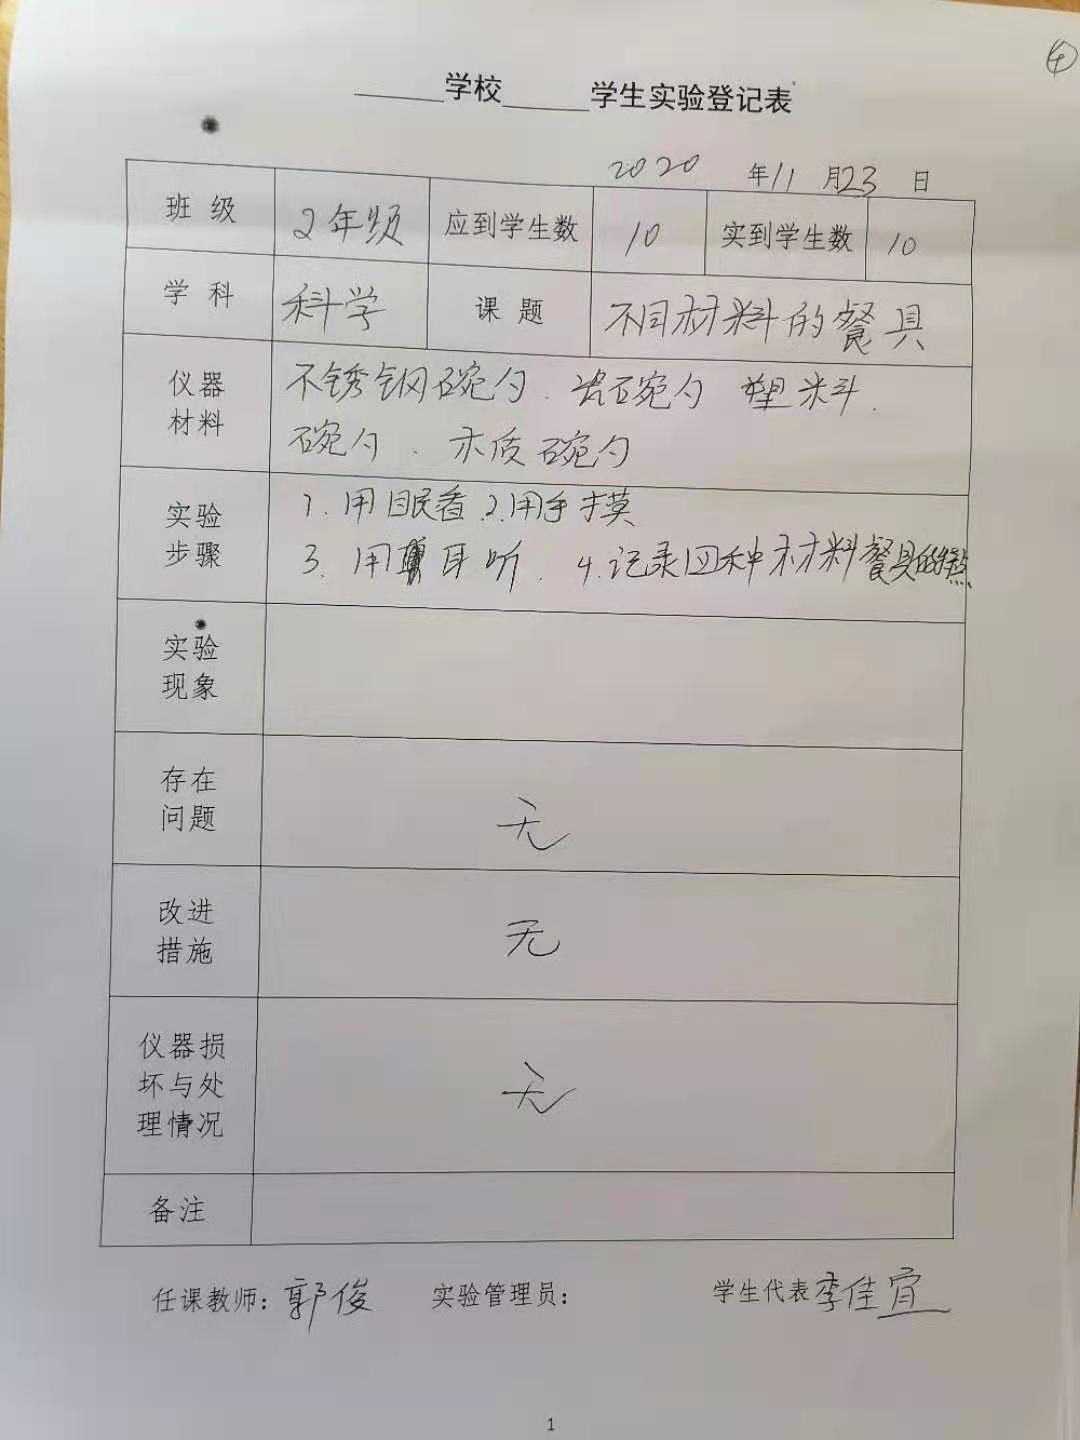 ④
学校 学生实验登记表
2020 年11月23日
班级 2年级 应到学生数 10 实到学生数 10
学科 科学 课题 不同材料的餐具
仪器
材料
不锈钢碗勺.瓷碗勺 塑料.
碗勺.木质碗勺
实验
步骤
1.用眼看.2.用手摸
3.用耳听.4.记录四种材料餐具的特点
实验
现象
存在
问题
无
改进
措施
无
仪器损
坏与处
理情况
无
备注
任课教师:郭俊 实验管理员: 学生代表李佳宜
1